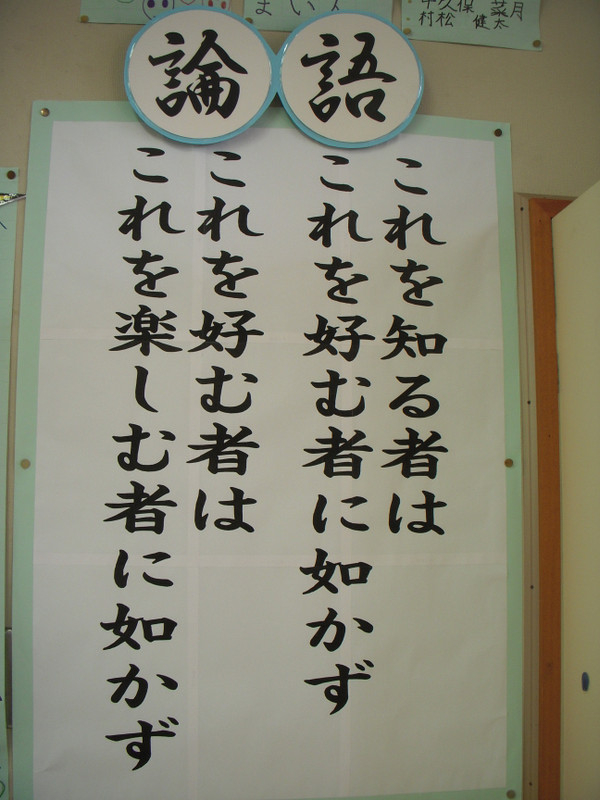 論語
これを知る者は
これを好む者に如かず
これを好む者は
これを楽しむ者に如かず
久保 菜月
村松 健太